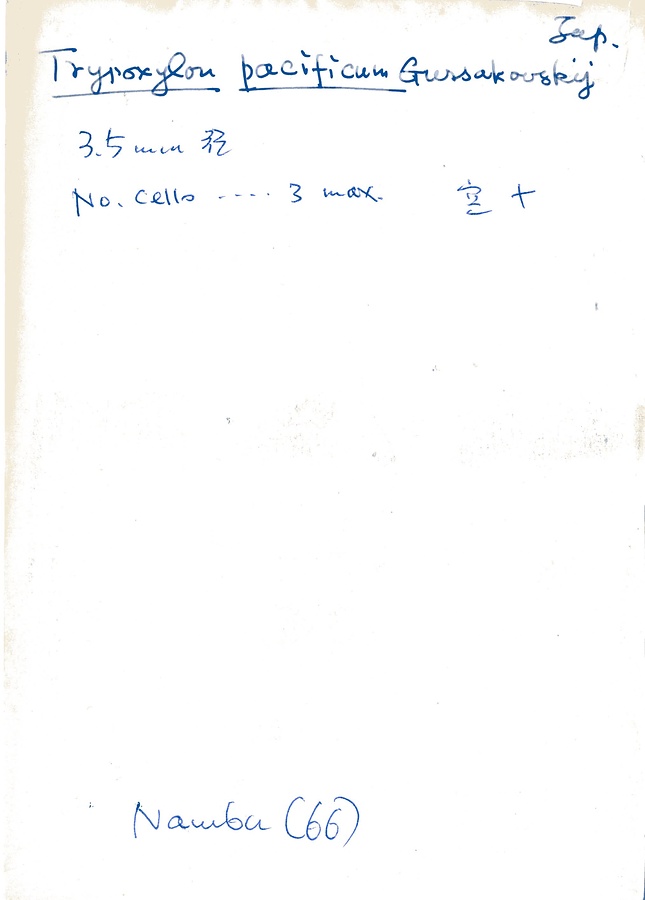 Jap.
Trypoxylon pacificum Gussakovskij
3.5 mm 径
No. cells ---- 3 max. 室 +
Nambu (66)